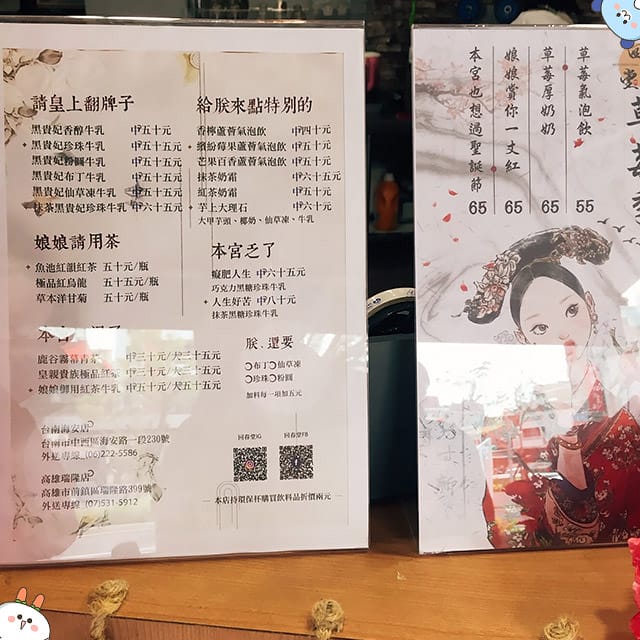 請皇上翻牌子
黑貴妃香醇牛乳 中五十元
黑貴妃珍珠牛乳 中五十五元
黑貴妃粉圓牛乳 中五十五元
黑貴妃布丁牛乳 中五十五元
黑貴妃仙草凍牛乳 中五十五元
抹茶黑貴妃珍珠牛乳 中六十五元
娘娘請用茶
魚池紅韻紅茶 五十元/瓶
極品紅烏龍 五十五元/瓶
草本洋甘菊 五十元/瓶
本宮
鹿谷霧幕青茶 中三十元/大三十五元
皇親貴族極品紅茶 中三十元/大三十五元
娘娘御用紅茶牛乳 中五十元/大五十元
台南海安店
台南市中西區海安路一段230號
外送專線_(06)222-5586
高雄瑞隆店
高雄市前鎮區瑞隆路399號
外送專線_(07)531-5912
給朕來點特別的
香檸蘆薈氣泡飲 中四十元
繽紛莓果蘆薈氣泡飲 中五十元
芒果百香蘆薈氣泡飲 中五十元
抹茶奶霜 中六十五元
紅茶奶霜 中五十元
芋上大理石 中六十元
大甲芋頭、椰奶、仙草凍、牛乳
本宮乏了
癡肥人生 中六十五元
巧克力黑糖珍珠牛乳
人生好苦 中八十元
抹茶黑糖珍珠牛乳
朕、還要
布丁 仙草凍
珍珠 粉圓
加料每一項加五元
回春堂IG
回春堂FB
本店持環保杯購買飲料品折價兩元
草莓氣泡飲 55
草莓厚奶奶 65
娘娘賞你一丈紅 65
本宮也想過聖誕節 65